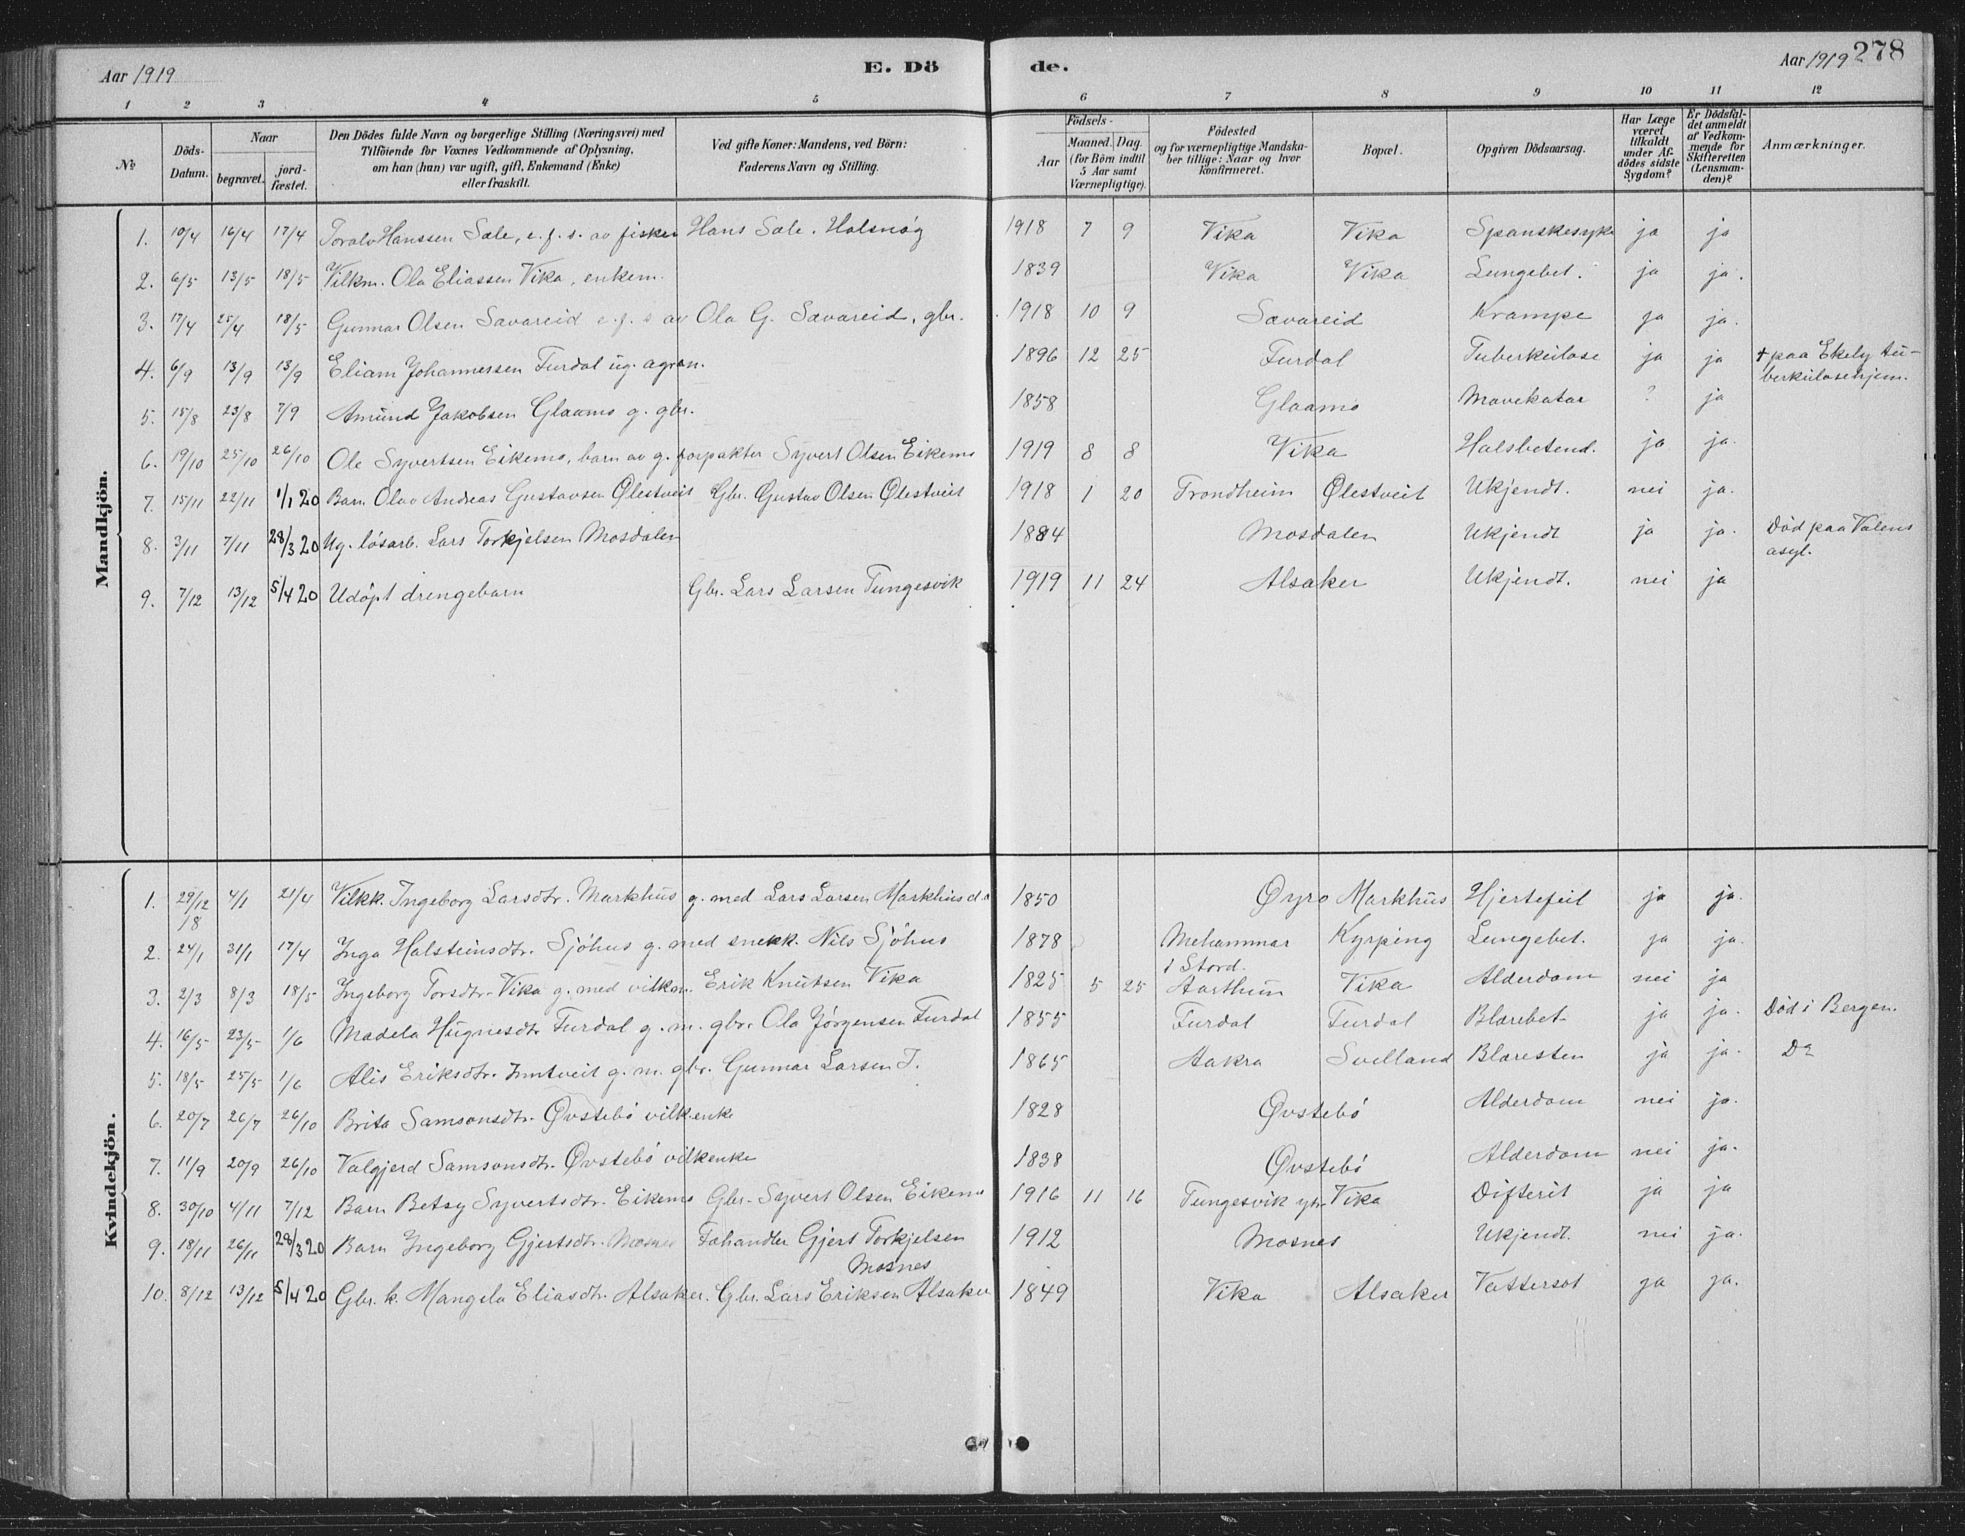 Aar 1919
E. Dö
de.
Aar 1919 278
1 2 3 4 5 6 7 8 9 10 11 12
№
Döds-
Datum.
Naar
begravet.
jord-
fæstet.
Den Dödes fulde Navn og borgerlige Stilling (Næringsvei) med
Tilföiende för Voxnes Vedkommende af Oplysning,
om han (hun) var ugift, gift, Enkemand (Enke)
eller fraskilt.
Ved gifte Koner: Mandens, ved Börn:
Faderens Navn og Stilling.
Födsels-
Aar
Maaned. Dag.
(for Börn indtil
5 Aar samt
Værnepligtige).
Födested
og for værnepligtige Mandska-
ber tillige: Naar og hvor
konfirmeret.
Bopæl.
Opgiven Dödsaarsag.
Har Læge
været
tilkaldt
under Af-
dödes sidste
Sygdom?
Er Dödsfal-
det anmeldt
af Vedkom-
mende for
Skifteretten
(Lensman-
den)?
Anmærkninger.
Mandkjön.
1. 10/4 16/4 17/4 Toralv Hanssen Sæle, e.f.s. av fisker Hans Sæle. Halsnøy 1918 7 9 Vika Vika Spanskesyke ja ja
2. 6/5 13/5 18/5 Vilkm. Ola Eliassen Vika, enkem. 1839 Vika Vika Lungebet. ja ja.
3. 17/4 25/4 18/5 Gunnar Olsen Sævareid e.f.s av Ola G. Sævareid, gbr. 1918 10 9 Sævareid Krampe ja ja.
4. 6/9 13/9 13/9 Eliam Johannessen Furdal ug. agron. 1896 12 25 Furdal Tuberkulose ja ja + paa Ekely tu-
berkulosehjem.
5. 15/8 23/8 7/9 Amund Jakobsen Glaamo g. gbr. 1858 Glaamo Mavekatar ? ja
6. 19/10 25/10 26/10 Ole Syvertsen Eikemo, barn av g. forpakter Syvert Olsen Eikemo 1919 8 8 Vika Halsbetend. ja ja.
7. 15/11 22/11 1/1 20 Barn Olav Andreas Gustavsen Ølestveit Gbr. Gustav Olsen Ølestveit 1918 1 20 Trondheim Ølestveit Ukjendt. nei ja.
8. 3/11 7/11 28/3 20 Ug. løsarb. Lars Torkjelsen Mosdalen 1884 Mosdalen Ukjendt ja ja. Död paa Valens
asyl.
9. 7/12 13/12 5/4 20 Udöpt drengebarn Gbr. Lars Larsen Tungesvik 1919 11 24 Alsaker Ukjendt. nei ja
Kvindekjön.
1. 29/12 18 4/1 21/4 Vilkk. Ingeborg Larsdtr. Markhus g. med Lars Larsen Markhus 1850 Øyro Markhus Hjertefeil ja ja.
2. 24/1 31/1 17/4 Inga Halsteinsdtr. Sjöhus g. med snekk. Nils Sjöhus 1878 Mehammar Kyrping Lungebet. ja ja.
i Stord.
3. 2/3 8/3 18/5 Ingeborg Torsdtr. Vika g. med vilkm. Erik Knutsen Vika 1825 5 25 Aarthun Vika Alderdom nei ja
4. 16/5 23/5 1/6 Madela Hugnesdtr Furdal g. m. gbr. Ola Jørgensen Furdal 1855 Furdal Furdal Blærebet. ja ja. Död i Bergen.
5. 18/5 25/5 1/6 Alis Eriksdtr. Inntveit g. m. gbr. Gunnar Larsen I. 1865 Aakra Svelland Blæresten ja ja. Do
6. 20/7 26/7 26/10 Brita Samsonsdtr. Øvstebö vilkenke 1828 Øvstebö Alderdom nei ja.
7. 11/9 20/9 26/10 Valgjerd Samsonsdtr. Øvstebö vilkenke 1838 Øvstebö Alderdom nei ja.
8. 30/10 4/11 7/12 Barn Betsy Syvertsdtr. Eikemo Gbr. Syvert Olsen Eikemo 1916 11 16 Tungesvik ytr. Vika Difterit ja ja
9. 18/11 26/11 28/3 20 Barn Ingeborg Gjertsdtr. Mosnes Fæhandler Gjert Torkjelsen 1912 Mosnes Ukjendt. nei ja.
Mosnes
10. 8/12 13/12 5/4 20 Gbr. k. Mangela Eliasdtr. Alsaker. Gbr. Lars Eriksen Alsaker 1849 Vika Alsaker Vattersot ja ja.